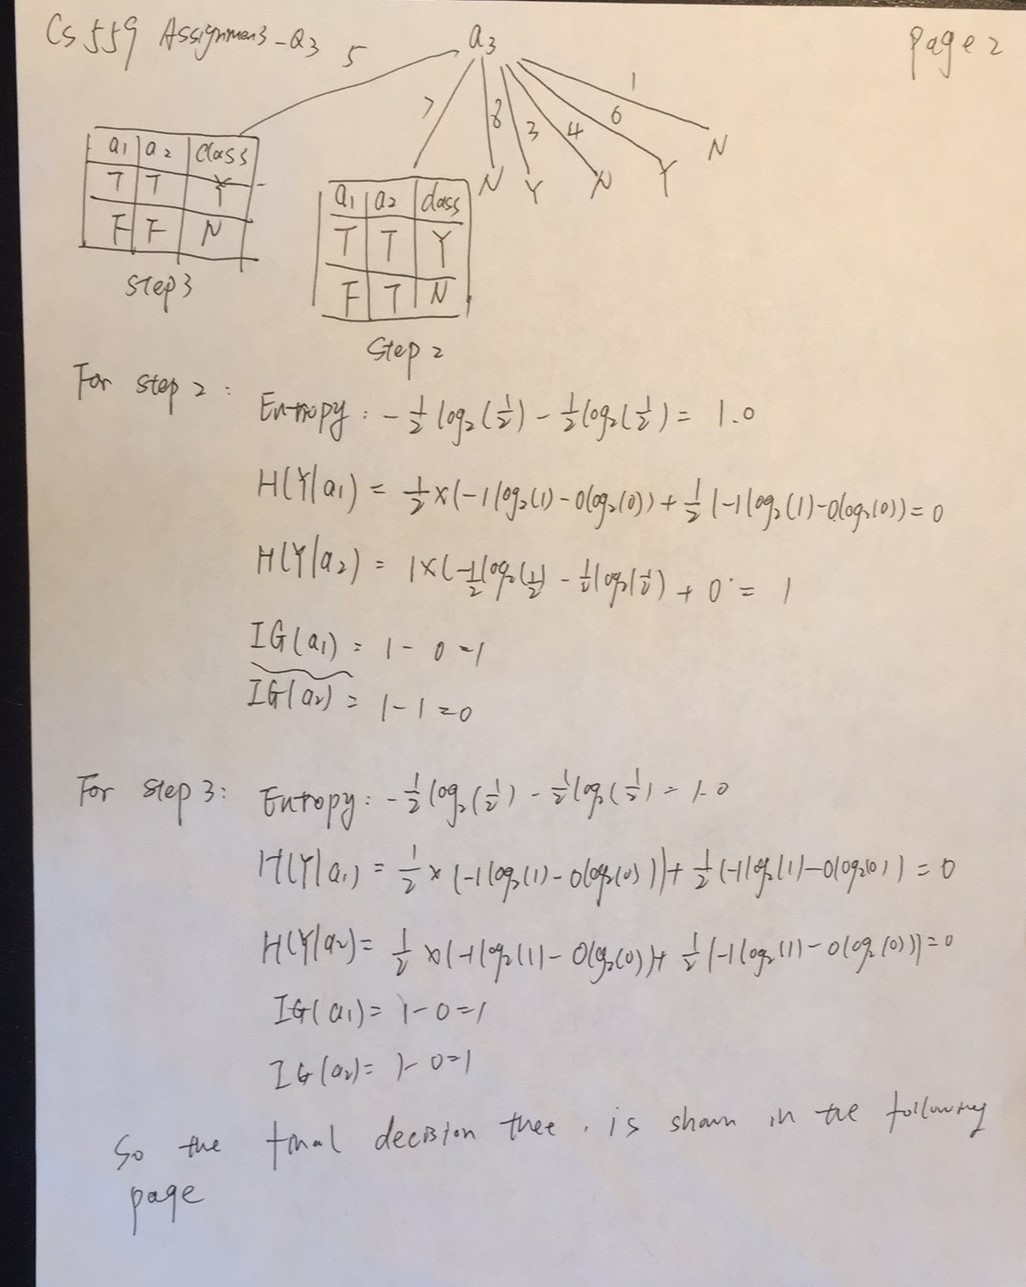 CS 559 Assignmen3-Q3
Page 2
a3
5 7 8 3 4 6 1
N Y N Y N
a1 a2 class
T T Y
F F N
Step 3
a1 a2 class
T T Y
F T N
Step 2
For step 2:
Entropy: -1/2 log2(1/2) - 1/2 log2(1/2) = 1.0
H(Y|a1) = 1/2 × (-1log2(1) - 0log2(0)) + 1/2 (-1log2(1) - 0log2(0)) = 0
H(Y|a2) = 1×(-1/2log2(1/2) - 1/2log2(1/2) + 0 = 1
IG(a1) = 1 - 0 = 1
IG(a2) = 1 - 1 = 0
For step 3:
Entropy: -1/2 log2(1/2) - 1/2 log2(1/2) = 1.0
H(Y|a1) = 1/2 × (-1log2(1) - 0log2(0)) + 1/2 (-1log2(1) - 0log2(0)) = 0
H(Y|a2) = 1/2 × (-1log2(1) - 0log2(0)) + 1/2 (-1log2(1) - 0log2(0)) = 0
IG(a1) = 1 - 0 = 1
IG(a2) = 1 - 0 = 1
So the final decision thee. is shown in the following
page